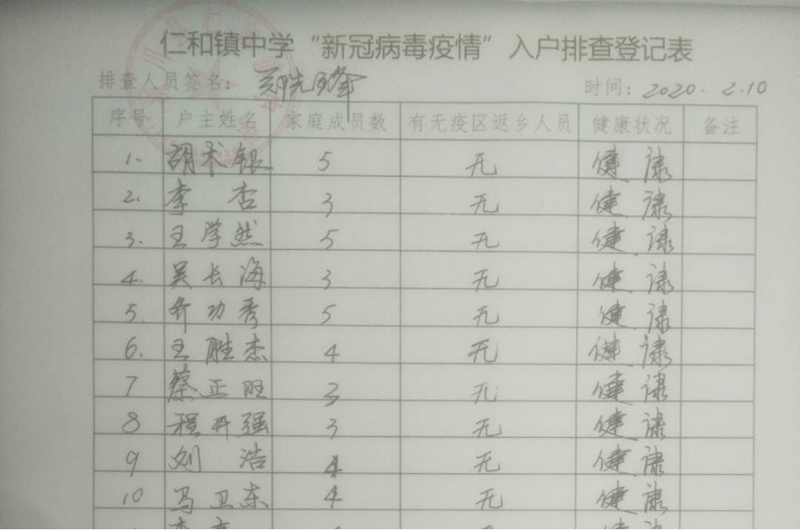 仁和镇中学“新冠病毒疫情”入户排查登记表
排查人员签名： 时间：2020.2.10
序号 户主姓名 家庭成员数 有无疫区返乡人员 健康状况 备注
1. 胡术银 5 无 健康
2. 李杏 3 无 健康
3. 王学然 5 无 健康
4. 吴长海 3 无 健康
5. 乔功秀 5 无 健康
6. 王胜杰 4 无 健康
7 蔡正旺 3 无 健康
8 程开强 3 无 健康
9 刘浩 4 无 健康
10 马卫东 4 无 健康